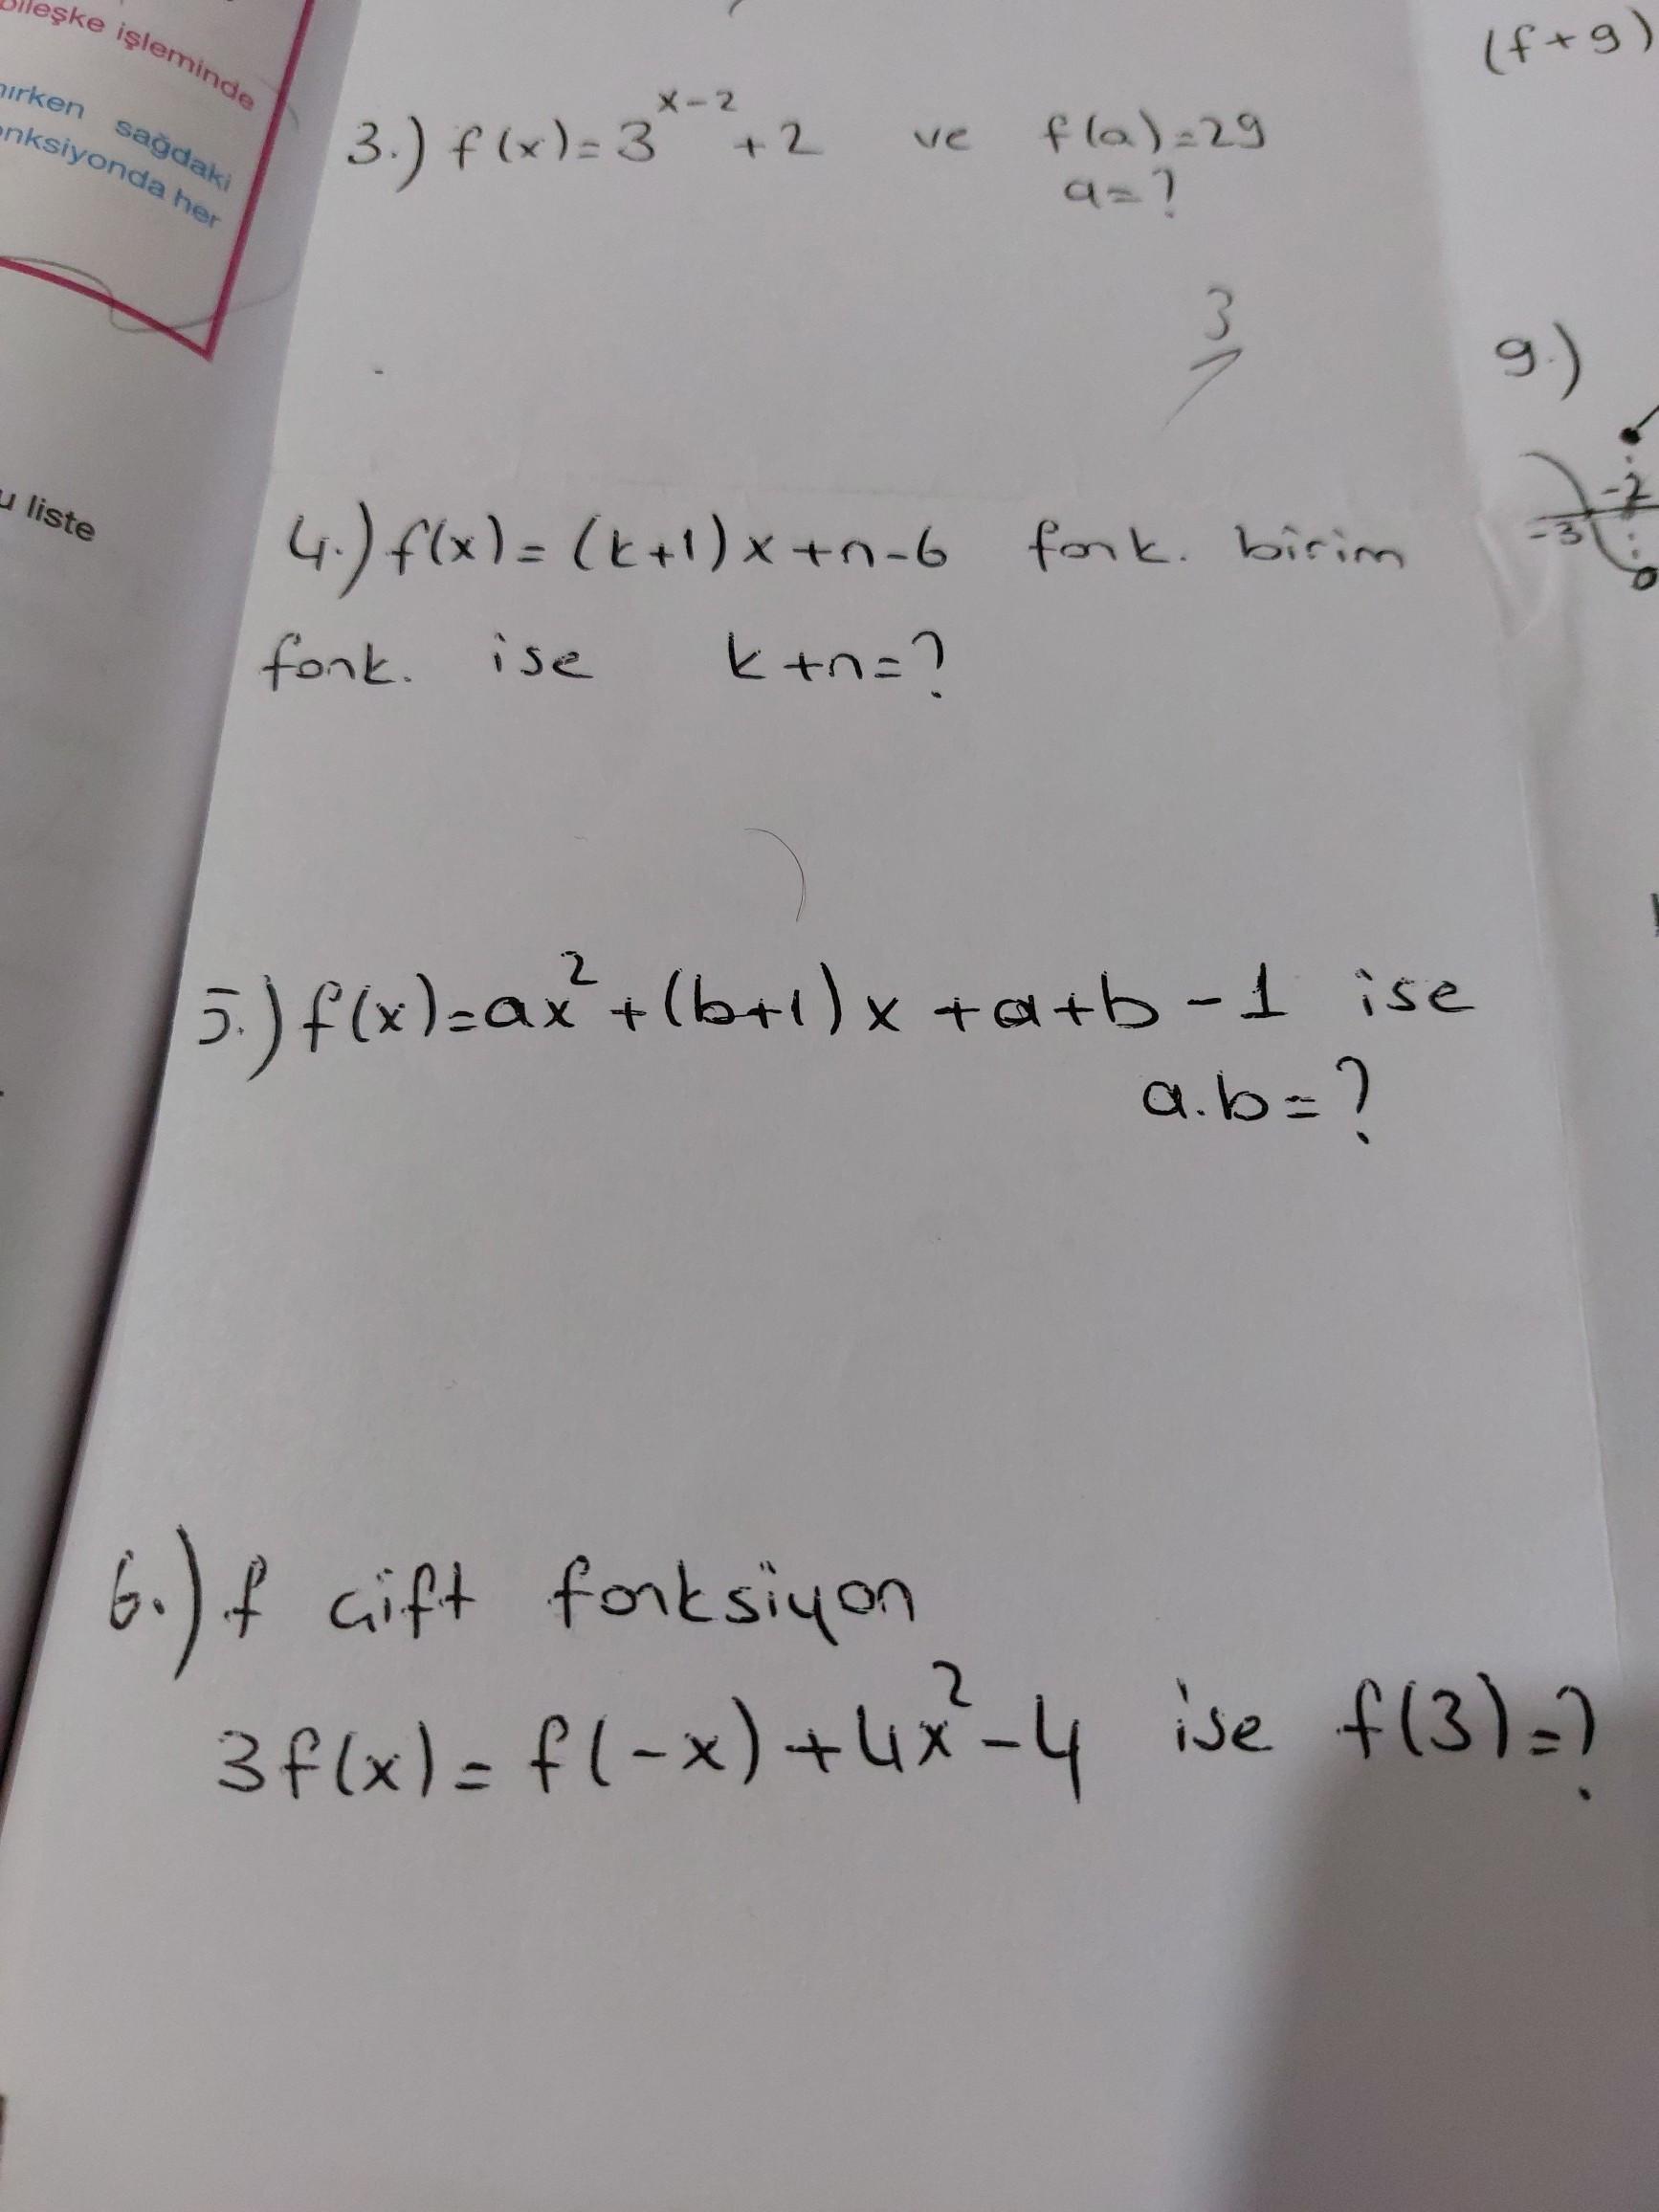 bileşke işleminde
sağdaki
her
liste
3.) f(x)=3^(x-2)+2 ve f(a)=29
a=?
3
4.) f(x)=(k+1)x+n-6 fonk. birim
fonk. ise k+n=?
5.) f(x)=ax²+(b+1)x+a+b-1 ise
a.b=?
6.) f çift fonksiyon
3f(x)=f(-x)+4x²-4 ise f(3)=?
(f+g)
9.)
-2
-3